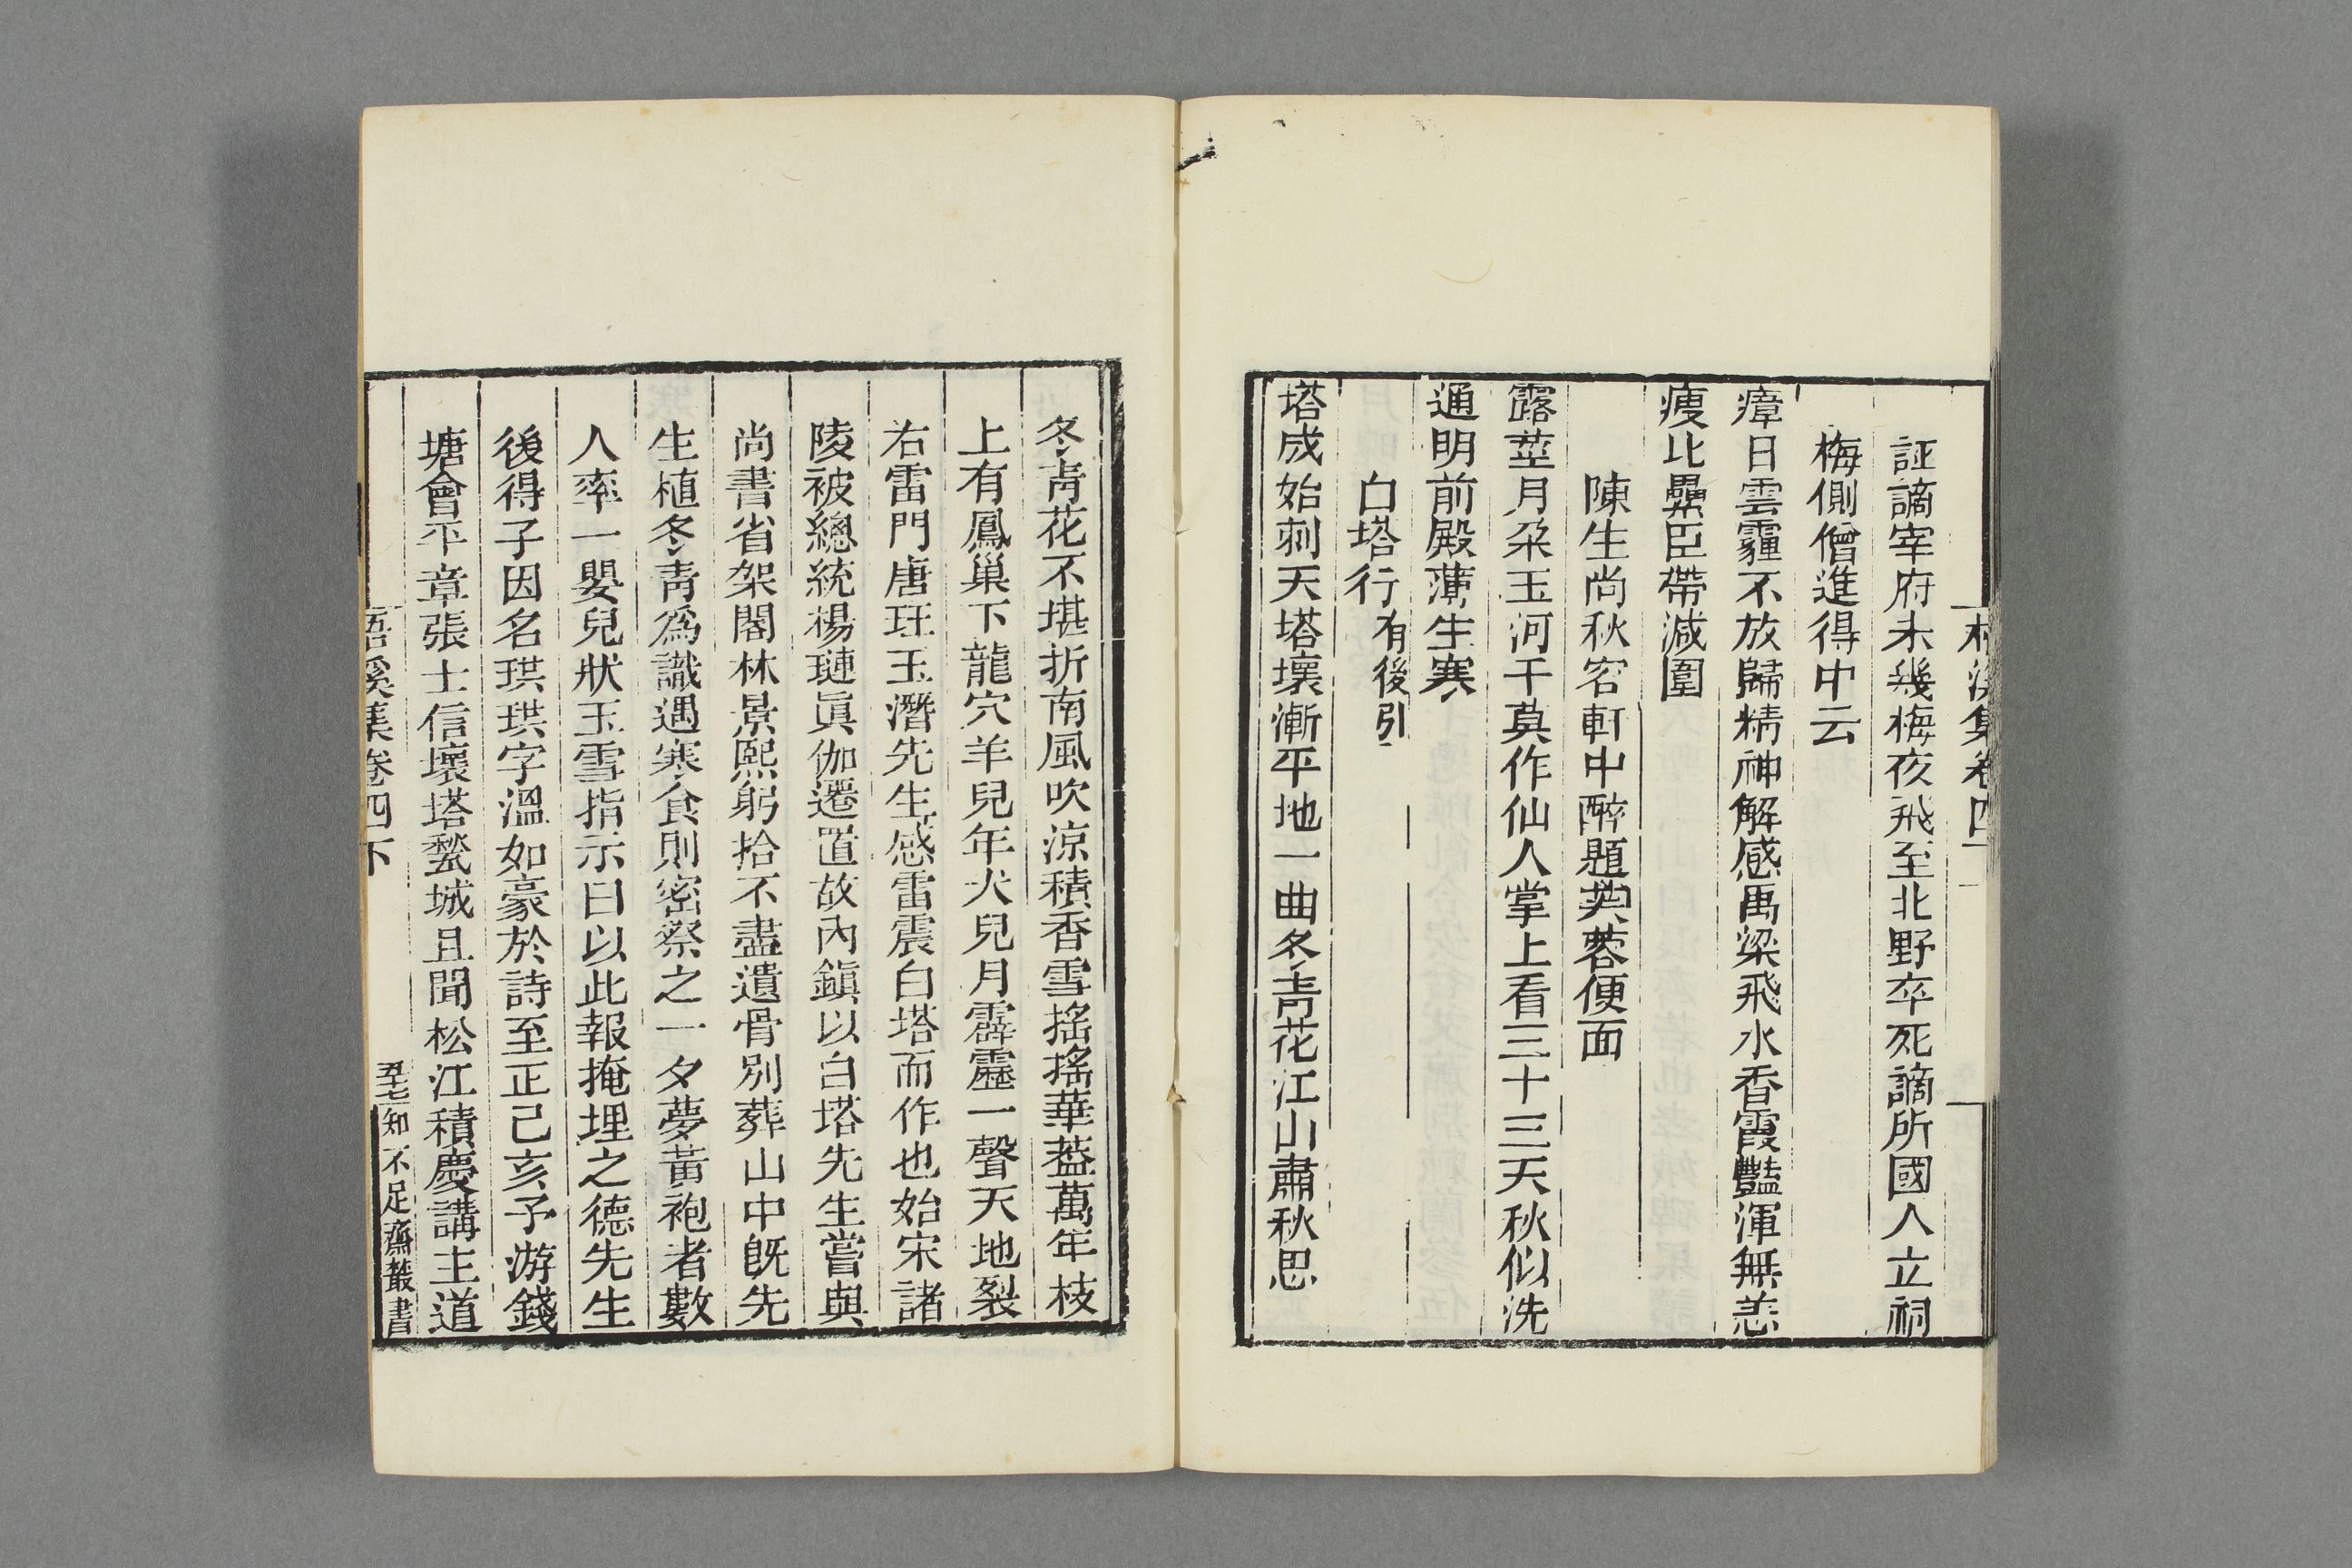 誣謫宰府未幾梅夜飛至北野卒死謫所國人立祠
梅側僧進得中云
瘴日雲霾不放歸精神解感禹梁飛水香霞豔渾無恙
瘦比纍臣帶減圍
陳生尚秋容軒中醉題英蓉便面
露莖月朶玉河干莫作仙人掌上看三十三天秋似洗
通明前殿薄生寒
白塔行有後引
塔成始刺天塔壞漸平地一曲冬青花江山肅秋思
冬靑花不堪折南風吹涼積香雪搖搖華葢萬年枝
上有鳳巢下龍穴羊兒年犬兒月霹靂一聲天地裂
右雷門唐珏玉潛先生感雷震白塔而作也始宋諸
陵被總統楊璉眞伽遷置故內鎭以白塔先生嘗與
尚書省架閣林景熙躬拾不盡遺骨別葬山中旣先
生植冬靑爲識遇寒食則密祭之一夕夢黃袍者數
人率一嬰兒狀玉雪指示曰以此報掩埋之德先生
後得子因名珙珙字溫如豪於詩至正己亥予游錢
塘會平章張士信壞塔甃城且聞松江積慶講主道
梧溪集卷四下
五七
知不足齋叢書